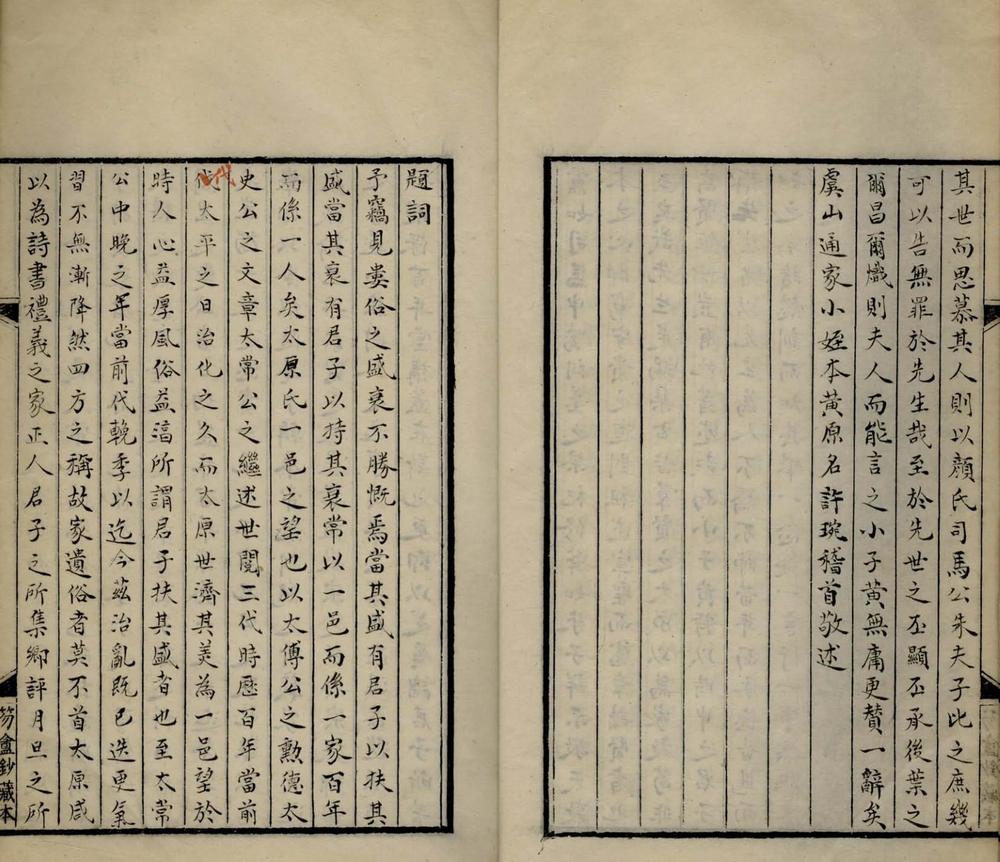 其世而思慕其人則以顏氏司馬公朱夫子此之庶幾
可以告無罪於先生哉至於先世之丕顯丕承後葉之
爾昌爾熾則夫人而能言之小子黃無庸更贊一辭矣
虞山通家小姪本黃原名許琬稽首敬述
題詞
予竊見婁俗之盛衰不勝慨焉當其盛有君子以扶其
盛當其衰有君子以持其衰常以一邑而係一家百年
而係一人矣太原氏一邑之望也以太傅公之勳德太
史公之文章太常公之繼述世閱三代時歷百年當前
代太平之日治化之久而太原世濟其美為一邑望於
時人心益厚風俗益淳所謂君子扶其盛者也至太常
公中晚之年當前代輓季以迄今茲治亂既已迭更氣
習不無漸降然四方之稱故家遺俗者莫不首太原咸
以為詩書禮義之家正人君子之所集鄉評月旦之所
笏盦鈔藏本